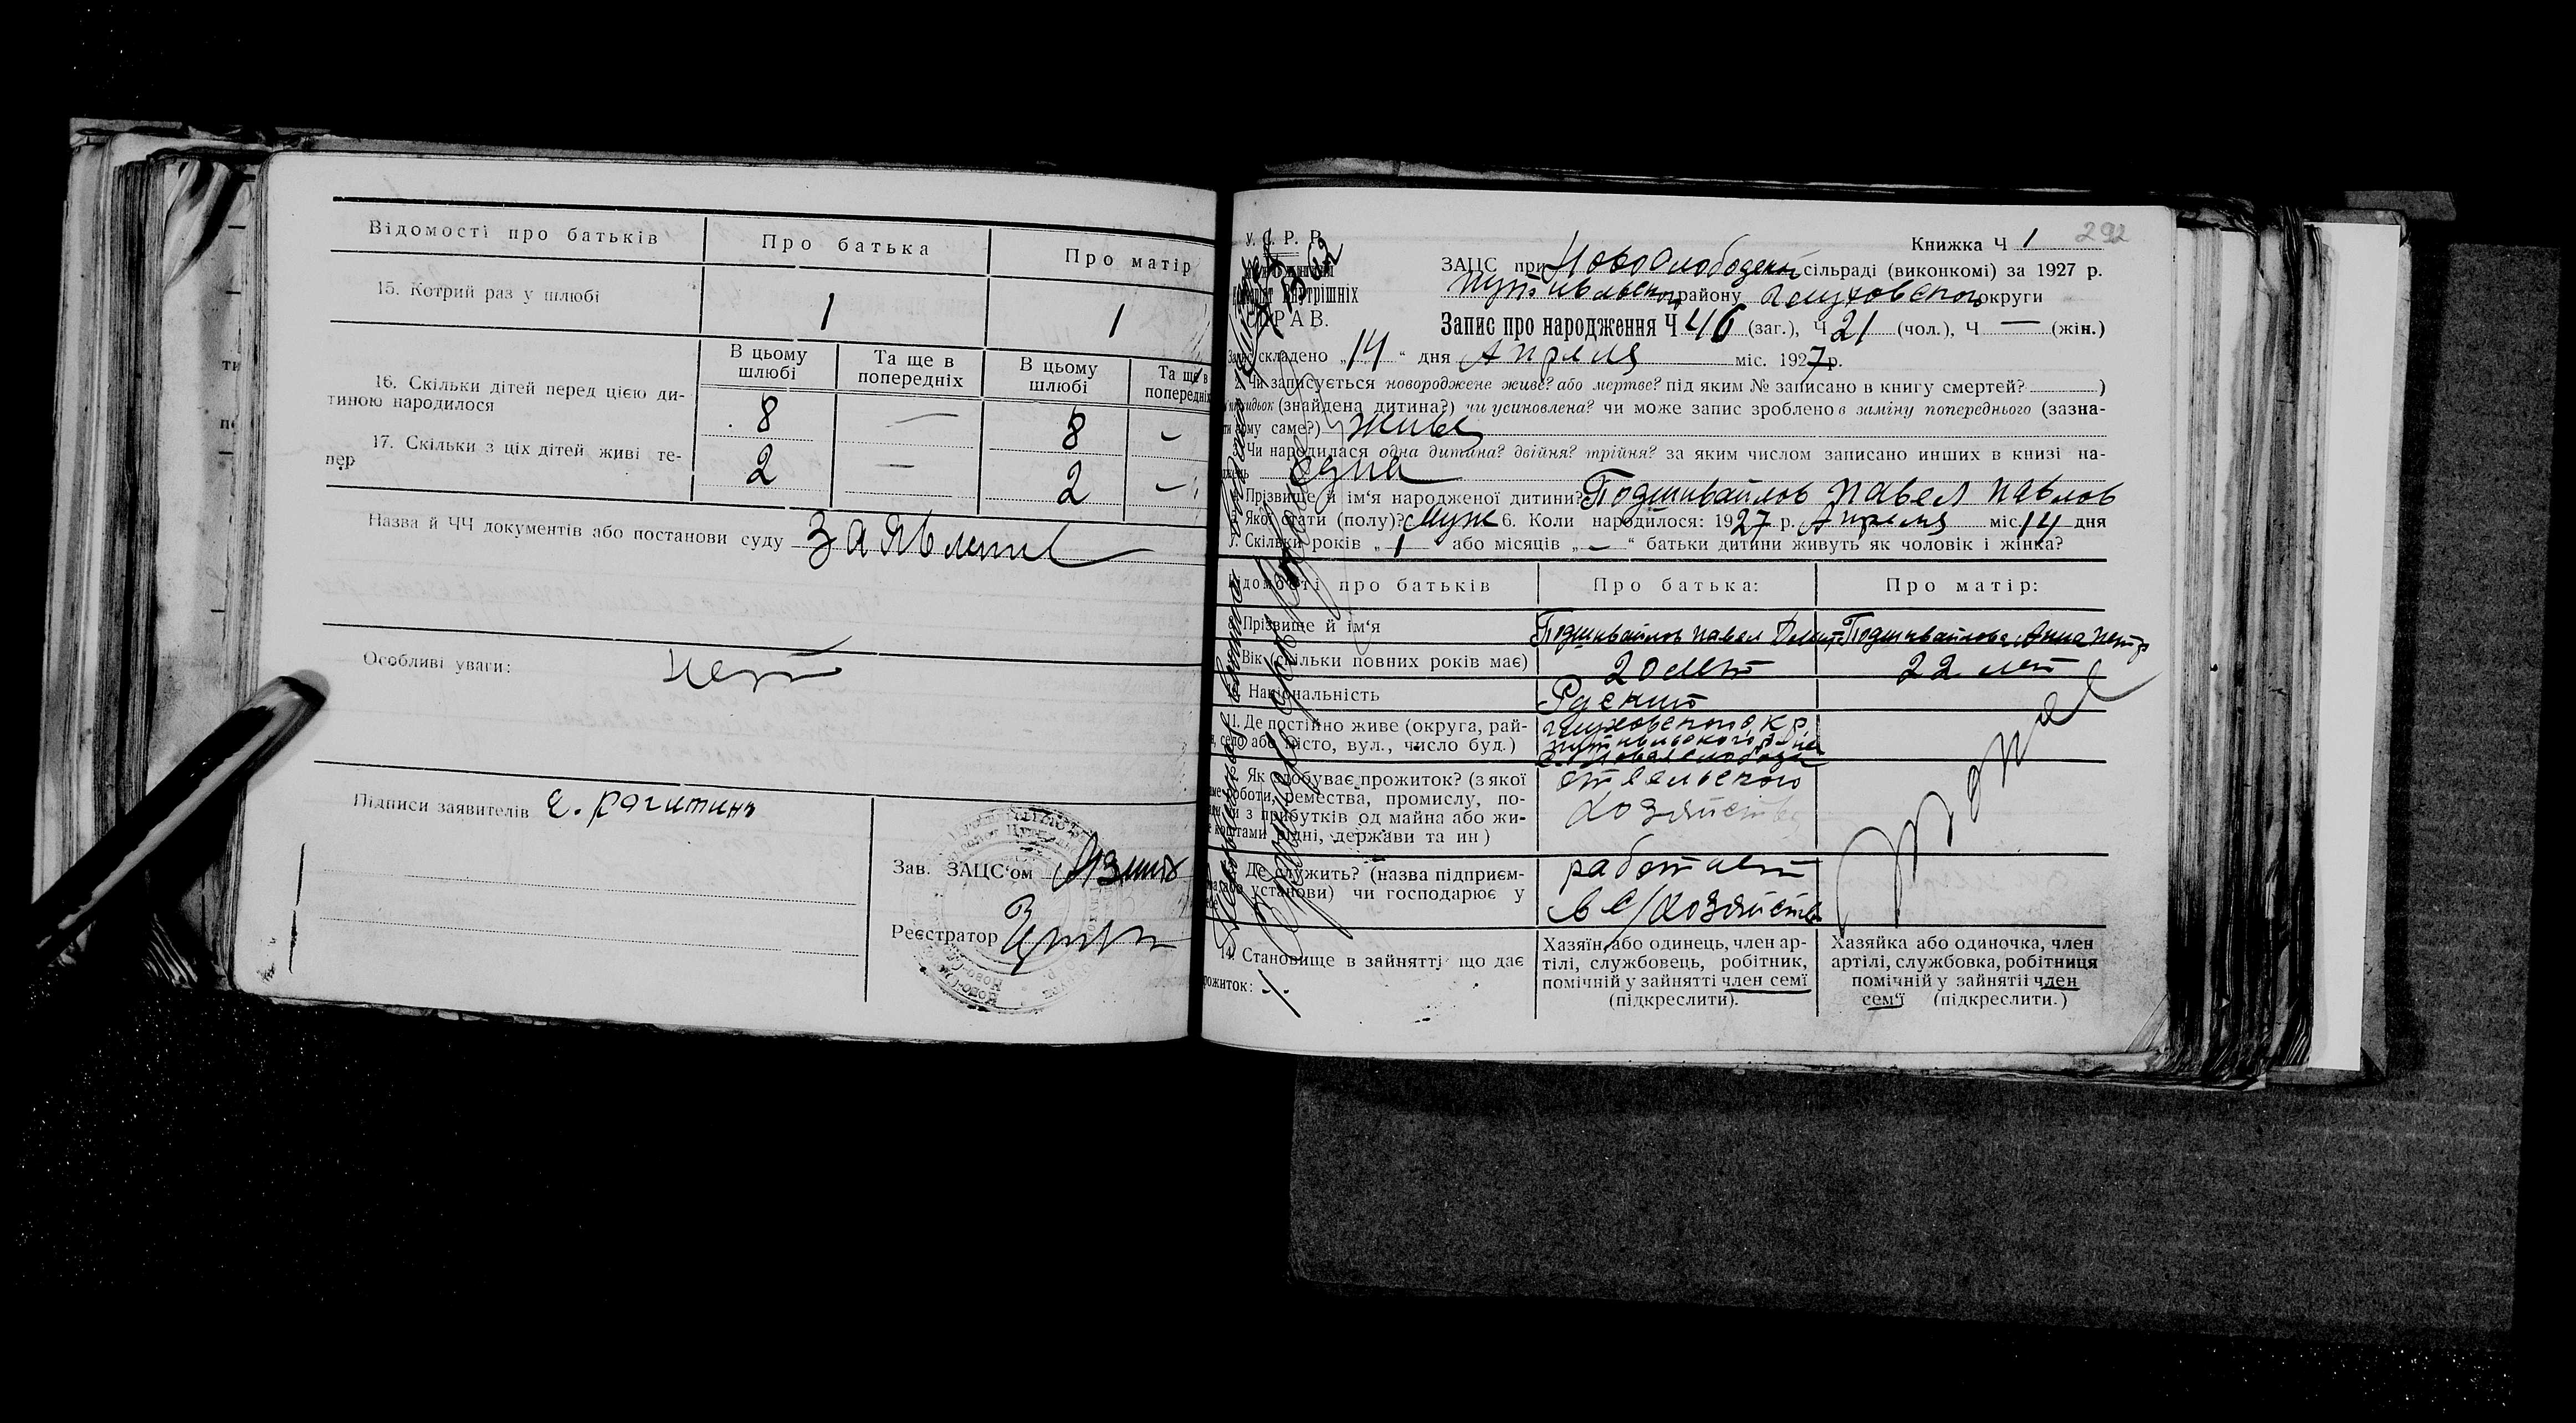 Відомості про батьків
Про батька
Про матір
15. Котрий раз у шлюбі
1
1
В цьому шлюбі
Та ще в попередніх
В цьому шлюбі
Та ще в попередніх
16. Скільки дітей перед цією ди-
тиною народилося
8
—
8
-
17. Скільки з ціх дітей живі те-
пер
2
—
2
-
Назва й ЧЧ документів або постанови суду Заявление
Особливі уваги: нет
Підписи заявителів
Зав. ЗАЦС'ом
Реєстратор
У. С. Р. Р.
Внутрішніх
СПРАВ.
Книжка Ч 1 292
ЗАЦС при Новослободской сільраді (виконкомі) за 1927 р.
Путивльского району Глуховского округи
Запис про народження Ч 46 (заг.), Ч 21 (чол.), Ч — (жін.)
складено „14“ дня Апреля міс. 1927 р.
2. Чи записується новороджене живе? або мертве? під яким № записано в книгу смертей? )
(знайдена дитина?) чи усиновлена? чи може запис зроблено в заміну попереднього (зазна-
саме?) живе
Чи народилася одна дитина? двійня? трійня? за яким числом записано инших в книзі на-
одна
Прізвище й ім'я народженої дитини? Подшивайлов Павел Павлов
Якої стати (полу)? Муж 6. Коли народилося: 1927 р. Апреля міс 14 дня
7. Скільки років „1“ або місяців „—“ батьки дитини живуть як чоловік і жінка?
Відомості про батьків
Про батька:
Про матір:
Прізвище й ім'я
Подшивайлов Павел
Подшивайлова Анна Петр
Вік (скільки повних років має)
20 лет
22 лет
Національність
Руский
11. Де постійно живе (округа, рай-
село або місто, вул., число буд.)
Глуховского окр
Путивльского
с. Новая слобода
Як здобуває прожиток? (з якої
роботи, ремества, промислу, по-
з прибутків од майна або жи-
коштами рідні, держави та ин)
от сельского
хозяйства
Де служить? (назва підприєм-
або установи) чи господарює у
работает
в с/хозяйстве
14. Становище в зайнятті що дає
прожиток:
Хазяїн, або одинець, член ар-
тілі, службовець, робітник,
помічній у зайнятті член семї
(підкреслити).
Хазяйка або одиночка, член
артілі, службовка, робітниця
помічній у зайнятіі член
сем'ї (підкреслити.)